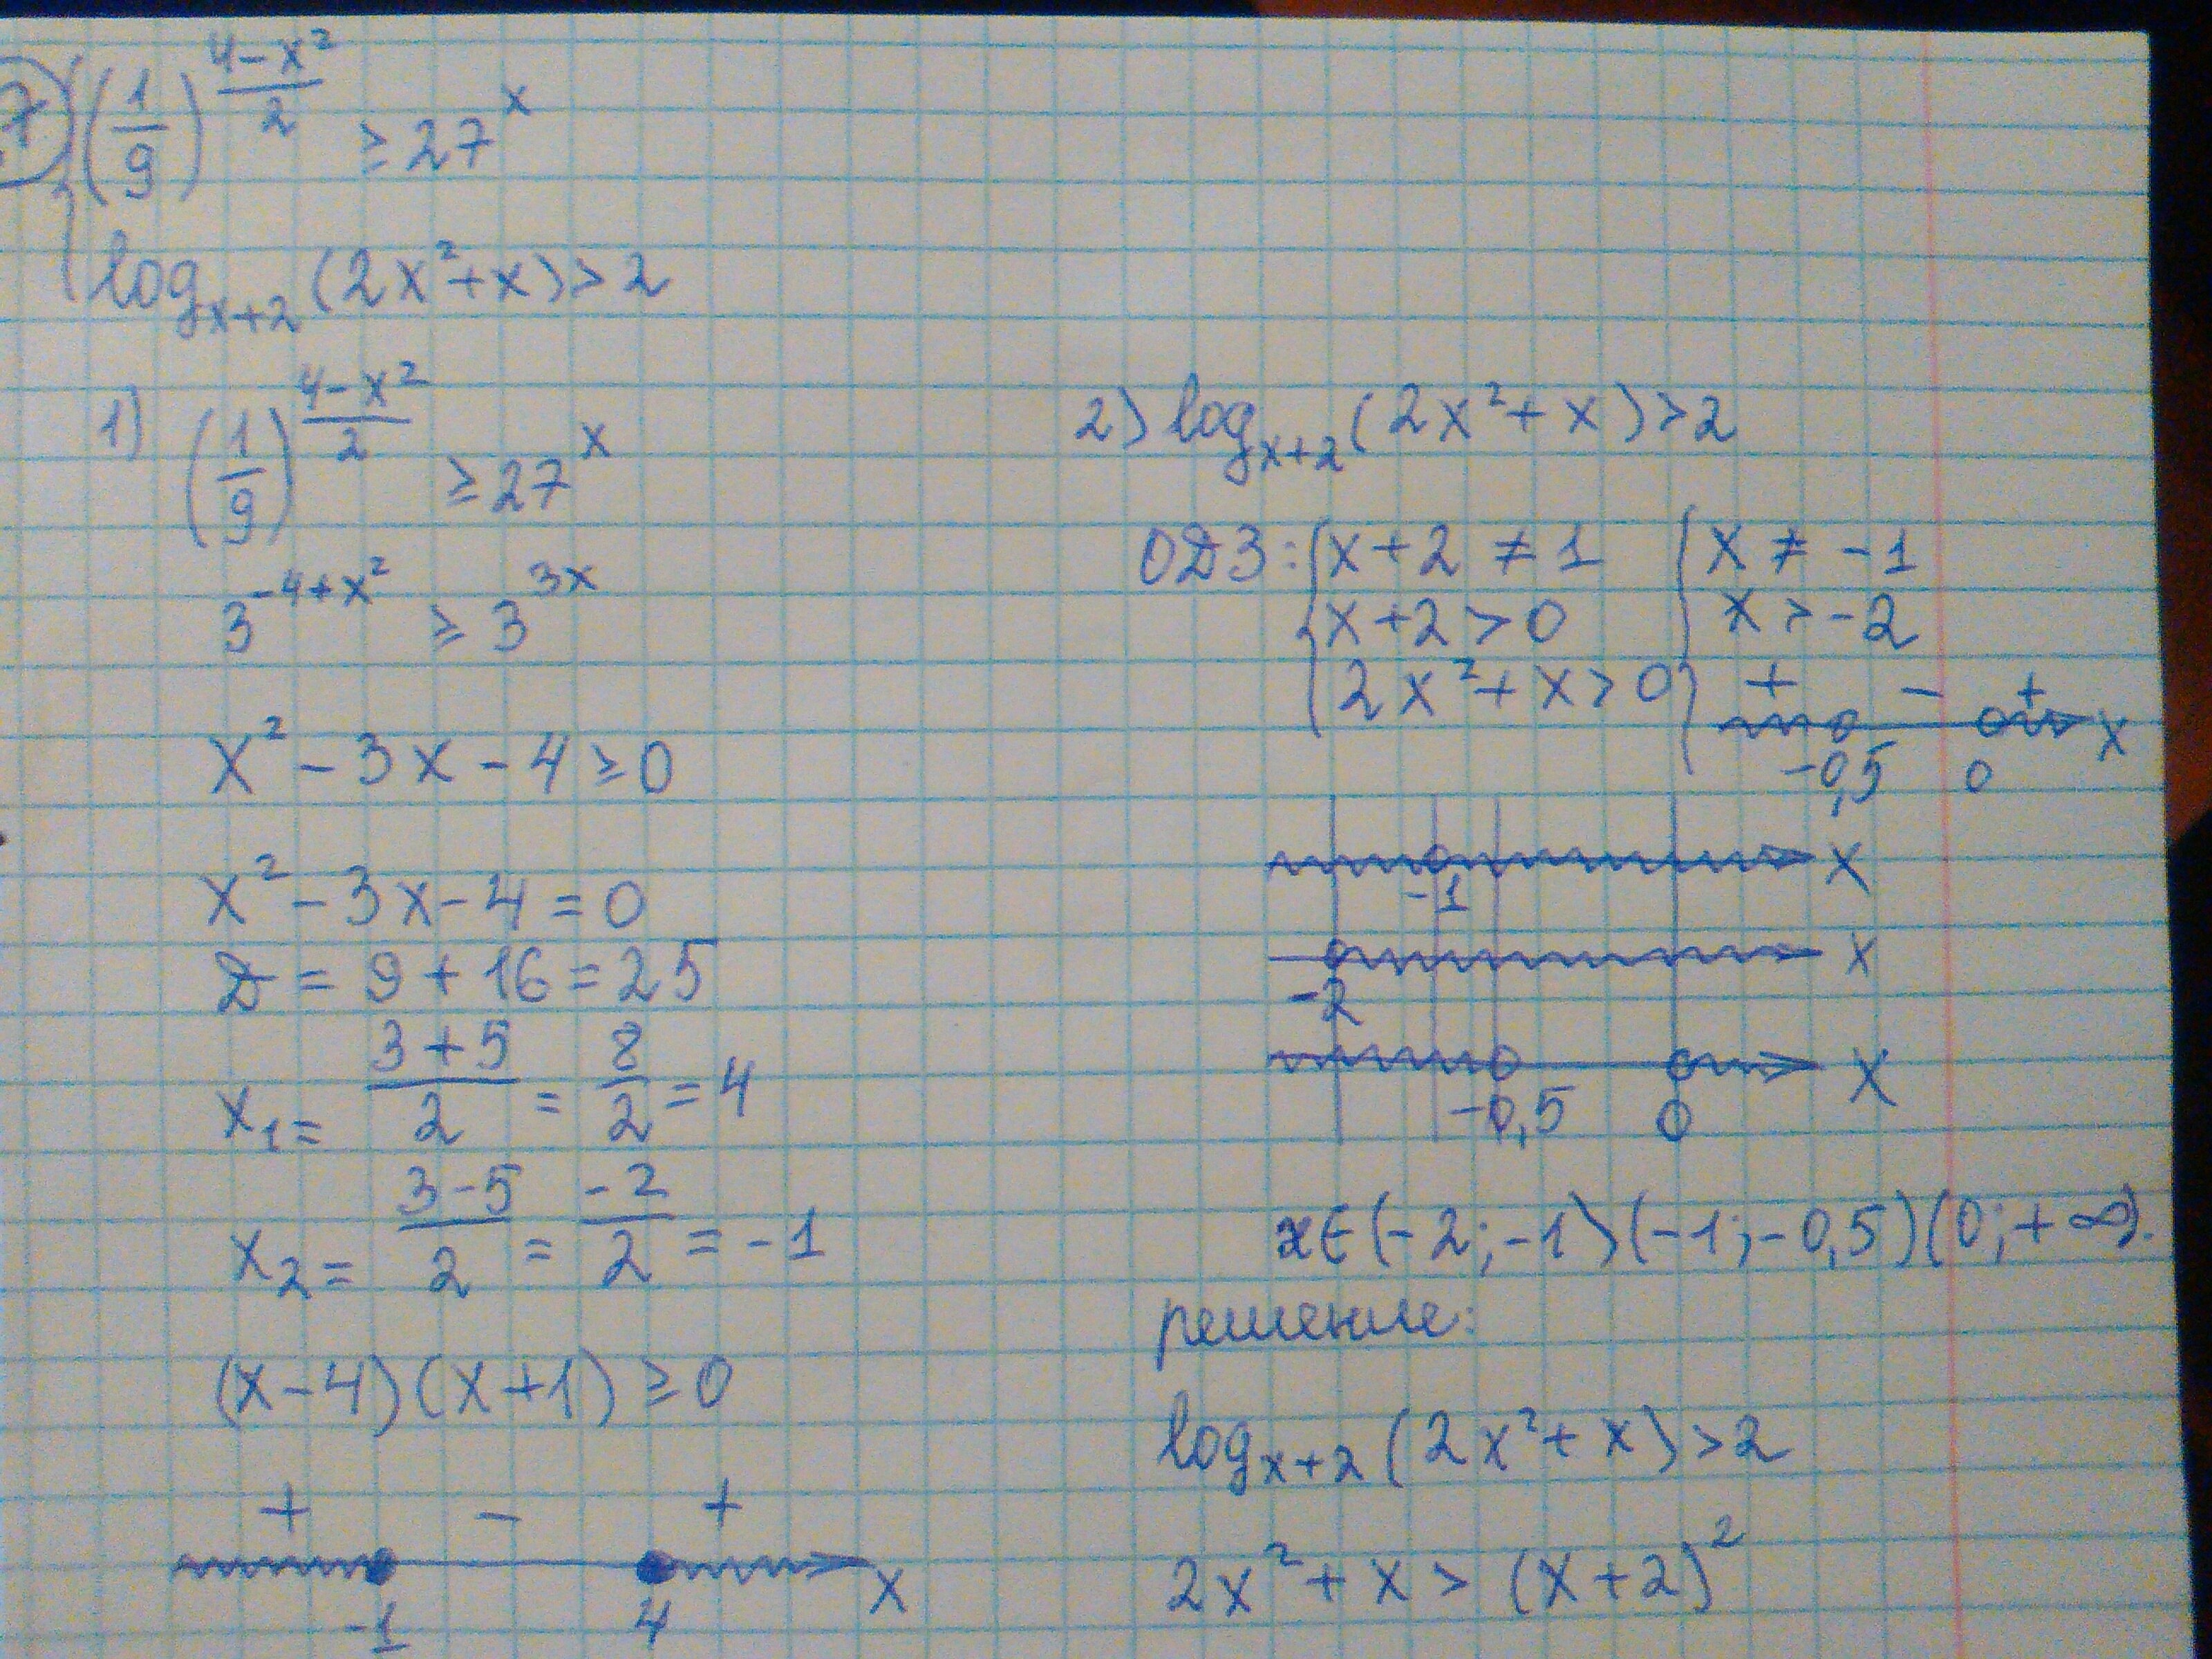 7
(1/9)^((4-x²)/2) ≥ 27^x
log_{x+2}(2x²+x)>2
1) (1/9)^((4-x²)/2) ≥ 27^x
3^(-4+x²) ≥ 3^(3x)
x² - 3x - 4 ≥ 0
x² - 3x - 4 = 0
D = 9 + 16 = 25
x₁ = (3+5)/2 = 8/2 = 4
x₂ = (3-5)/2 = -2/2 = -1
(x-4)(x+1) ≥ 0
+ - +
-1 4 x
2) log_{x+2}(2x²+x)>2
ОДЗ: { x+2 ≠ 1 { x ≠ -1
x+2 > 0 x > -2
2x²+x>0 + - +
-0,5 0 x
-1 x
-2 x
-0,5 0 x
x∈(-2;-1)(-1;-0,5)(0;+∞).
решение:
log_{x+2}(2x²+x)>2
2x²+x > (x+2)²